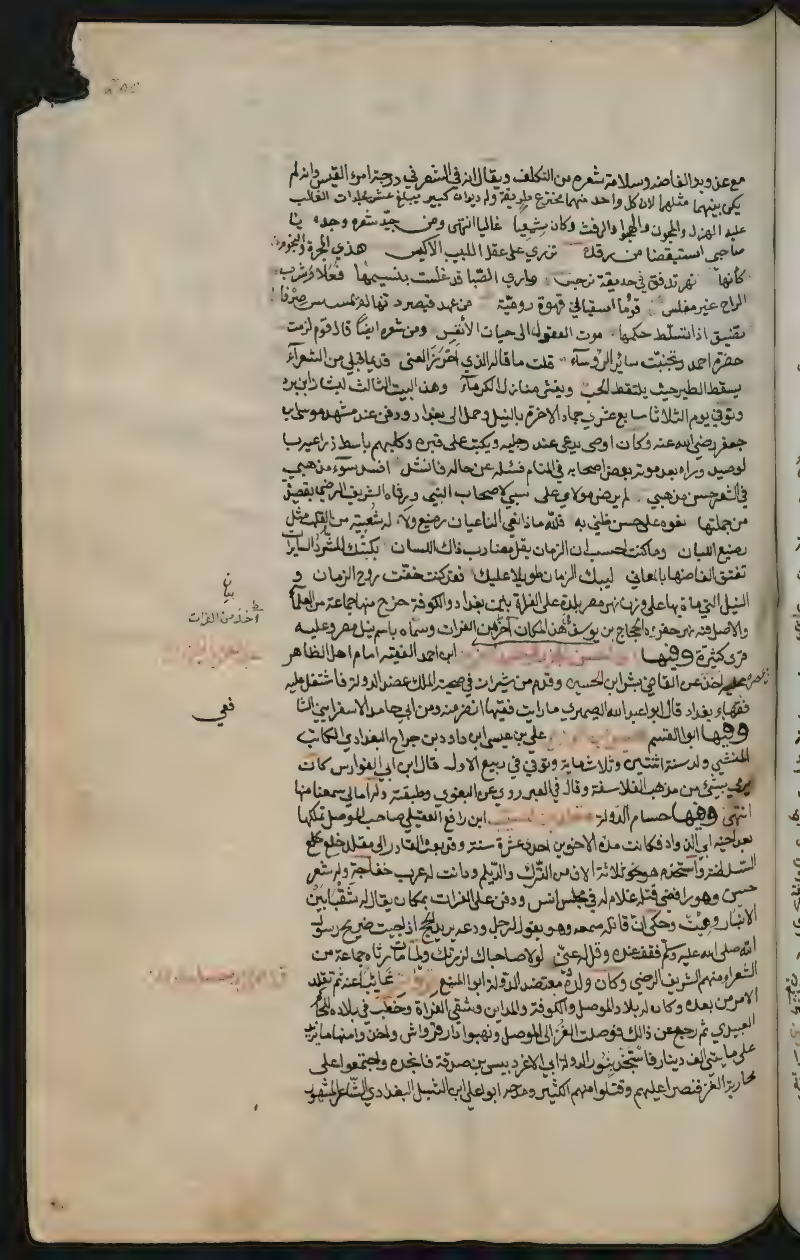 مع عذوبة الفاظه وسلامة شعره من التكلف ويقال انه في الشعر في درجة امرء القيس وانه لم
يكن بينهما مثلهما لان كل واحد منهما مخترع طريقة وله ديوان كبير يبلغ عشر مجلدات الغالب
عليه الهزل والمجون والهجو والرفث وكان شيعيا غاليا انتهى ومن جيد شعره وجده يا
صاحبي استيقظا من رقدة تزري على عقل اللبيب الاكيس هذي المجرة والنجوم
كأنها نهر تدفق في حديقة نرجس واري الصبا قد غلست بنسيمها فعلام شرب
الراح غير مغلس قوما اسقياني قهوة رومية من عهد قيصر دنها لم يمسس صرفا
تضيق اذا تسلط حكمها موت العقول الى حيات الانفس ومن شعره ايضا قال قوم لزمت
حضرة احمد وتجنبت سائر الرؤساء قلت ما قاله الذي احرز المعنى قديما قبلي من الشعراء
يسقط الطير حيث يلتقط الحب ويغشى منازل الكرماء وهذا البيت الثالث لبشار ابن برد
وتوفي يوم الثلاثا سابع عشري جماد الاخرة بالنيل وحمل الى بغداد ودفن عند مشهد موسى بن
جعفر رضي الله عنه وكان اوصى يدفن عند رجليه ويكتب على قبره وكلبهم باسط ذراعيه
لوصيد وراه بعد موته بعض اصحابه في المنام فسئله عن حاله فانشد افسد سوء مذهبي
في الشعر حسن مذهبي لم يرض مولاي على سبي لاصحاب النبي ورثاه الشريف الرضي بقصيدة
من جملتها نعوه على حسن ظني به فلله ماذا نعي الناعيان رضيع ولاء له شعبة من القلب مثل
رضيع اللبان وما كنت احسب ان الزمان يفل مضارب ذاك اللسان بكيتك للشرد السايرات
تفتق الفاظها بالمعاني ليبك الزمان طويلا عليك فقد كنت خفة روح الزمان و
النيل التي مات بها على وزن نهر مصر بلدة على الفراة بين بغداد والكوفة خرج منها جماعة من العلماء
والاصل فنهر حفره الحجاج بن يوسف هذا المكان آخره من الفرات وسماه باسم نيل مصر وعليه
قرى كثيرة وفيها ابن احمد الفقيه امام اهل الظاهر
اخذ عن القاضي بشر ابن الحسين وقدم من شيراز في صحبة الملك عضد الدولة فاشتغل عليه
فقهاء بغداد قال ابو عبد الله الصيمري ما رايت فقيها انظر منه ومن ابي حامد الاسفرايني الشا
وفيها ابو القسم علي بن عيسى ابن داود بن جراح البغدادي الكاتب
المنشي ولد سنة اثنتين وثلاث ماية وتوفي في ربيع الاول قال ابن ابي الفوارس كان
يرمى بشيء من مذهب الفلاسفة وقال في العبر روى عن البغوي وطبقته وله امالي سمعنا منها
انتهى وفيها حسام الدولة مقلد بن المسيب ابن رافع العقيلي صاحب الموصل تملكها
بعد اخيه ابي الذواد فكانت مدة الاخوين احدى عشرة سنة وقد بعث القادر الى مقلد خلع
السلطنة واستخدم هو نحو ثلاثة الاف من الترك والديلم ودانت له عرب خفاجة وله شعر
حسن وهو رافضي قتله غلام له في مجلس انس ودفن على الفرات بمكان يقال له شقيا بين
الانبار وهيت وحكي ان قاتله سمعه وهو يقول لرجل ودعه يريد الحج اذا جيت ضريح رسول
الله صلى الله عليه وسلم فقف عنده وقل له عني لولا صاحباك لزرتك ولما مات رثاه جماعة من
الشعراء منهم الشريف الرضي وكان ولده معتمد الدولة ابو المنيع قرواش غائبا عنه ثم تقلد
الامر من بعده وكان له بلاد الموصل والكوفة والمداين وسقي الفراة وخطب في بلاده للحاكم
العبيدي ثم رجع عن ذلك فوصلت الغز الى الموصل ونهبوا دار قرواش واخذوا منها ما يزيد
على مايتي الف دينار فاستنجد بنور الدولة ابي الاغر دبيس بن صدقة فانجده واجتمعوا على
محاربة الغز فنصرا عليهم وقتلوا منهم الكثير ومدحه ابو علي ابن الشبل البغدادي الشاعر المشهور
بيان
اخذه من الفرات
فعي